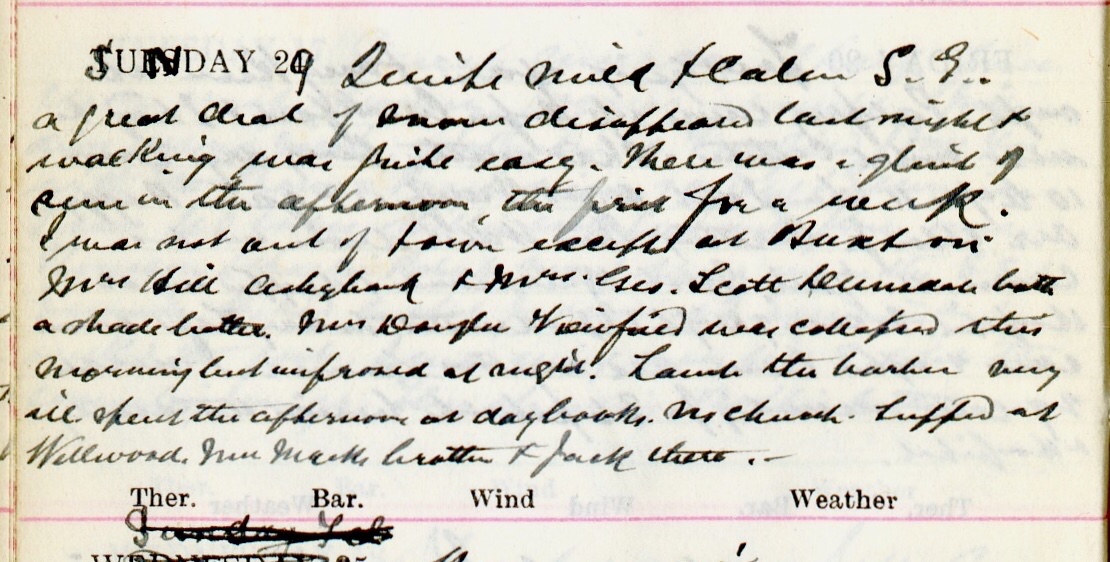 SUNDAY 29 Quite mild & Calm S. E..
a great deal of snow disappeared last night &
walking was quite easy. There was a glint of
sun in the afternoon, the first for a week.
I was not out of town except at Buxton
Mrs Hill & Mrs. Geo. Scott both
a shade better. Mrs Douglas was collapsed this
morning but improved at night. Lamb the barber very
ill. Spent the afternoon at daybooks. No church. Supped at
Wellwood. Mrs Macks brother & Jack there. -
Ther. Bar. Wind Weather
Sunday Feb